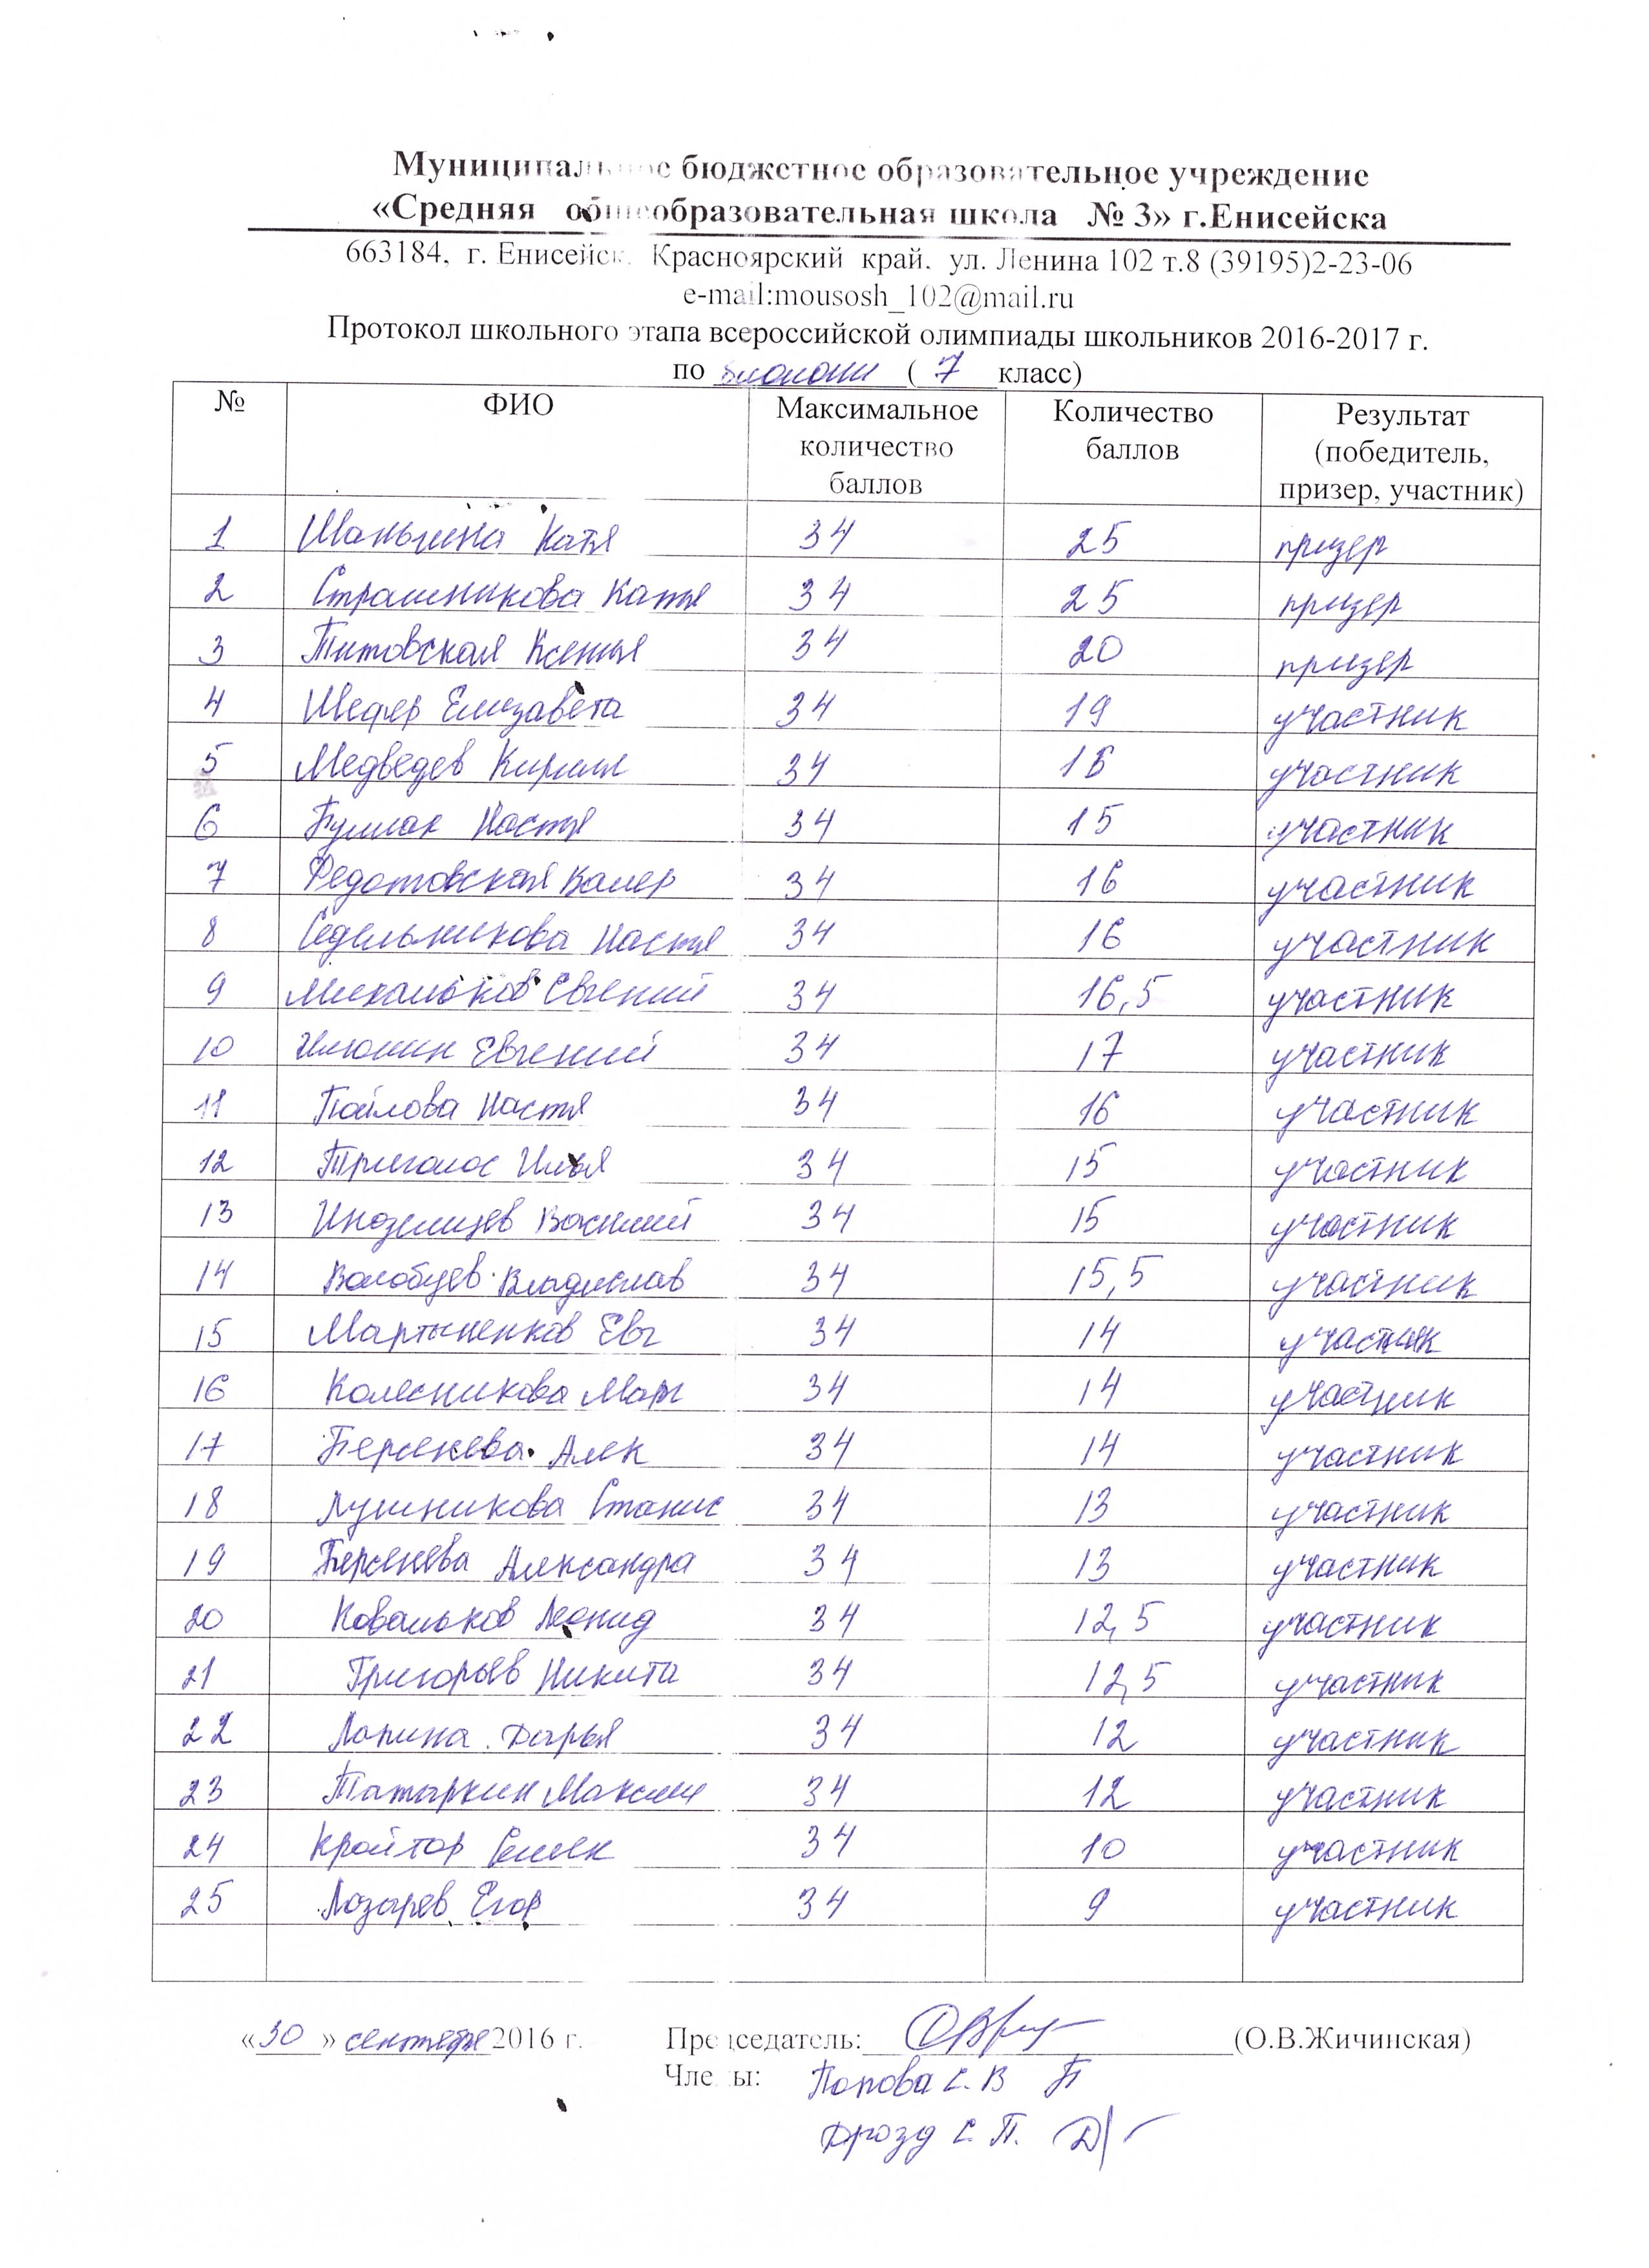 Муниципальное бюджетное образовательное учреждение
«Средняя общеобразовательная школа № 3» г.Енисейска
663184, г. Енисейск, Красноярский край, ул. Ленина 102 т.8 (39195)2-23-06
e-mail:mousosh_102@mail.ru
Протокол школьного этапа всероссийской олимпиады школьников 2016-2017 г.
по биологии ( 7 класс)
№ ФИО Максимальное количество баллов Количество баллов Результат (победитель, призер, участник)
1 Шаньгина Катя 34 25 призер
2 Страшникова Катя 34 25 призер
3 Титовская Ксенья 34 20 призер
4 Шефер Елизавета 34 19 участник
5 Медведев Кирилл 34 участник
6 Настя 34 15 участник
7 Федотовская Валер 34 16 участник
8 Седельникова Настя 34 16 участник
9 Михальков Евгений 34 16,5 участник
10 Илюшин Евгений 34 17 участник
11 Настя 34 16 участник
12 Триголос Илья 34 15 участник
13 Иноземцев Василий 34 15 участник
14 Волобуев Владислав 34 15,5 участник
15 Мартыненков Евг 34 14 участник
16 Колесникова Мар 34 14 участник
17 Берсенева Алек 34 14 участник
18 Лушникова Станис 34 13 участник
19 Берсенева Александра 34 13 участник
20 Ковальков Леонид 34 12,5 участник
21 Григорьев Никита 34 12,5 участник
22 Лапина Дарья 34 12 участник
23 Татаркин Максим 34 12 участник
24 Кройтор 34 10 участник
25 Лазарев Егор 34 9 участник
«30» сентября 2016 г. Председатель: (О.В.Жичинская)
Члены: Попова С. В
Дрозд С. П.